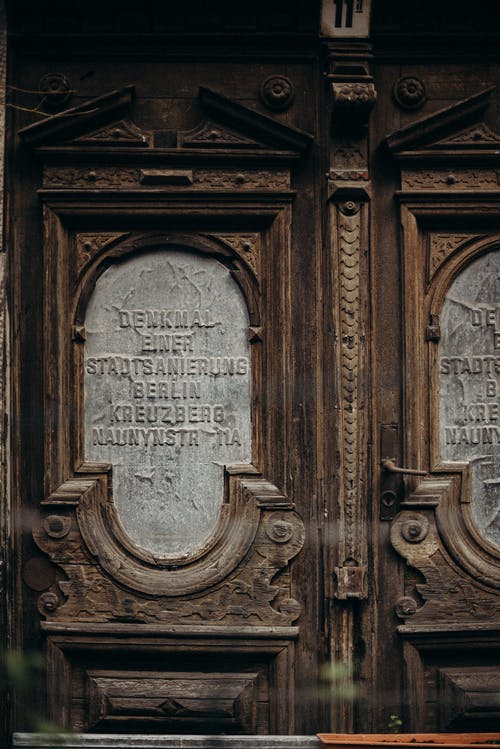 11a
DENKMAL
EINER
STADTSANIERUNG
BERLIN
KREUZBERG
NAUNYNSTR 11A
DE
STADTSA
B
KREU
NAUNYN